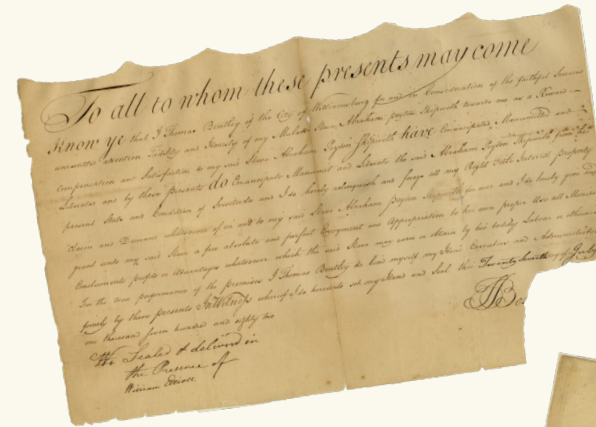 To all to whom these presents may come
Know ye that I Thomas Bentley of the City of Williamsburg for and in Consideration of the faithful Services
unremitted attention Fidelity and Honesty of my Mulatto Slave Abraham Peyton Skipwith towards me as a Reward
Compensation and Satisfaction to my said Slave Abraham Peyton Skipwith have Emancipated Manumitted and
Liberated and by these Presents do Emancipate Manumit and Liberate the said Abraham Peyton Skipwith from his
present State and Condition of Servitude and I do hereby relinquish and forego all my Right Title Interest Property
Claim and Demand whatsoever of in and to my said Slave Abraham Peyton Skipwith for ever and I do hereby give and
grant unto my said Slave a free absolute and perfect Enjoyment and Appropriation to his own proper Use all Manner
Emoluments profits or Advantages whatsoever which the said Slave may earn or attain by his bodily Labour or otherwise
for the true performance of the premises I Thomas Bentley do bind myself my Heirs Executors and Administrators
firmly by these presents In Witness whereof I do hereunto set my Hand and Seal this Twenty Seventh day of July
one thousand seven hundred and eighty two
Sealed & delivered in
the Presence of
William